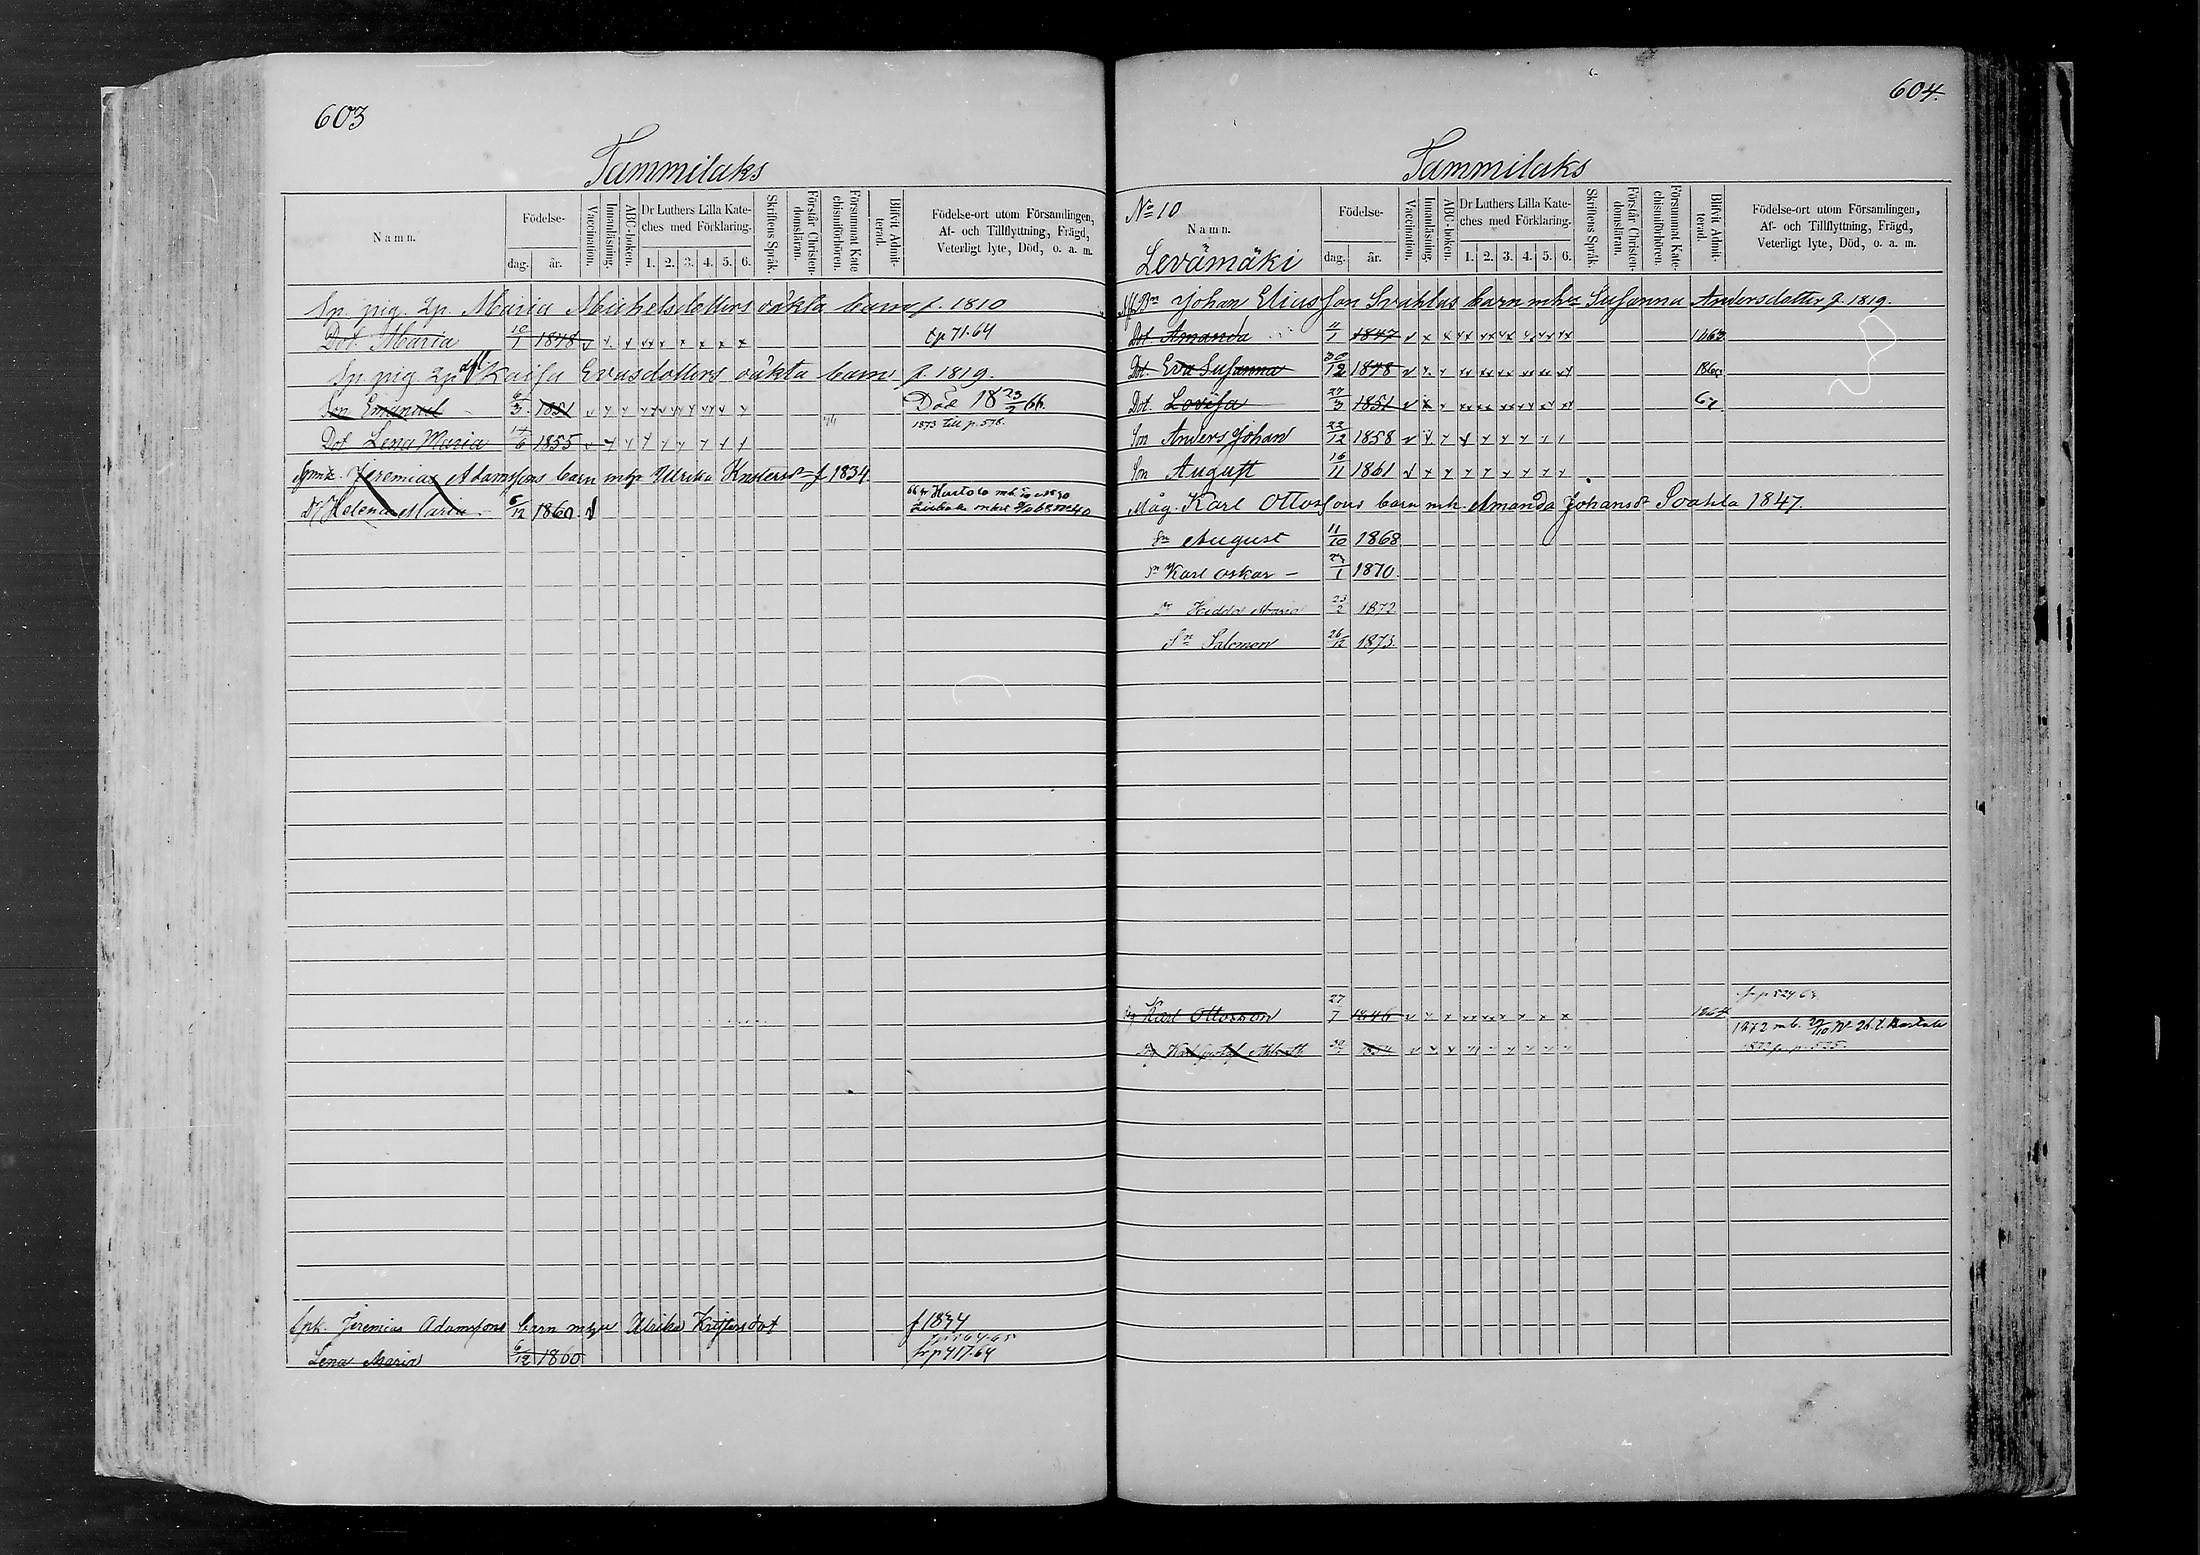 603
Tammilaks
Namn.
Födelse-
dag. år.
Vaccination.
Innanläsning.
ABC-boken.
Dr Luthers Lilla Kate-
ches med Förklaring.
1. 2. 3. 4. 5. 6.
Skriftens Språk.
Förstår Christen-
domsläran.
Försummat Kate-
chismiförhören.
Blifvit Admit-
terad.
Födelse-ort utom Församlingen,
Af- och Tillflyttning, Frägd,
Veterligt lyte, Död, o. a. m.
Sp. pig. Maria Michelsdotters oäkta barn f. 1810
Dot. Maria 10/1 1848 71.64
Sp pig. Kaisa Evasdotters oäkta barn f. 1819.
Son Emanuel 1851 Död 18 23/2 66.
1873 till p. 578.
Dot Lena Maria 6 1855
Jeremias Adamssons barn Ulrika f 1834.
Dr Helena Maria 6/12 1860.
Jeremias Adamssons barn Ulrika f 1834
Lena Maria 6/12 1860 417.64
604.
Tammilaks
No 10
Namn.
Levämäki
Födelse-
dag. år.
Vaccination.
Innanläsning.
ABC-boken.
Dr Luthers Lilla Kate-
ches med Förklaring.
1. 2. 3. 4. 5. 6.
Skriftens Språk.
Förstår Christen-
domsläran.
Försummat Kate-
chismiförhören.
Blifvit Admit-
terad.
Födelse-ort utom Församlingen,
Af- och Tillflyttning, Frägd,
Veterligt lyte, Död, o. a. m.
Johan Eliasson Svahlas barn Susanna Andersdotter f. 1819.
Dot. Amanda 4/1 1847
Dot. Eva Susanna 30/12 1848
Dot. Lovisa 27/3 1851 67
Son Anders Johan 22/12 1858
Son August 16/11 1861
Måg. Karl Ottossons barn mh. Amanda Johansdr Svahla 1847.
Sn August 11/10 1868
Sn Karl Oskar 1870
Dr Hedda Maria 23/2 1872
Sn Salomon 26/12 1873.
Karl Ottosson 27/7 1846